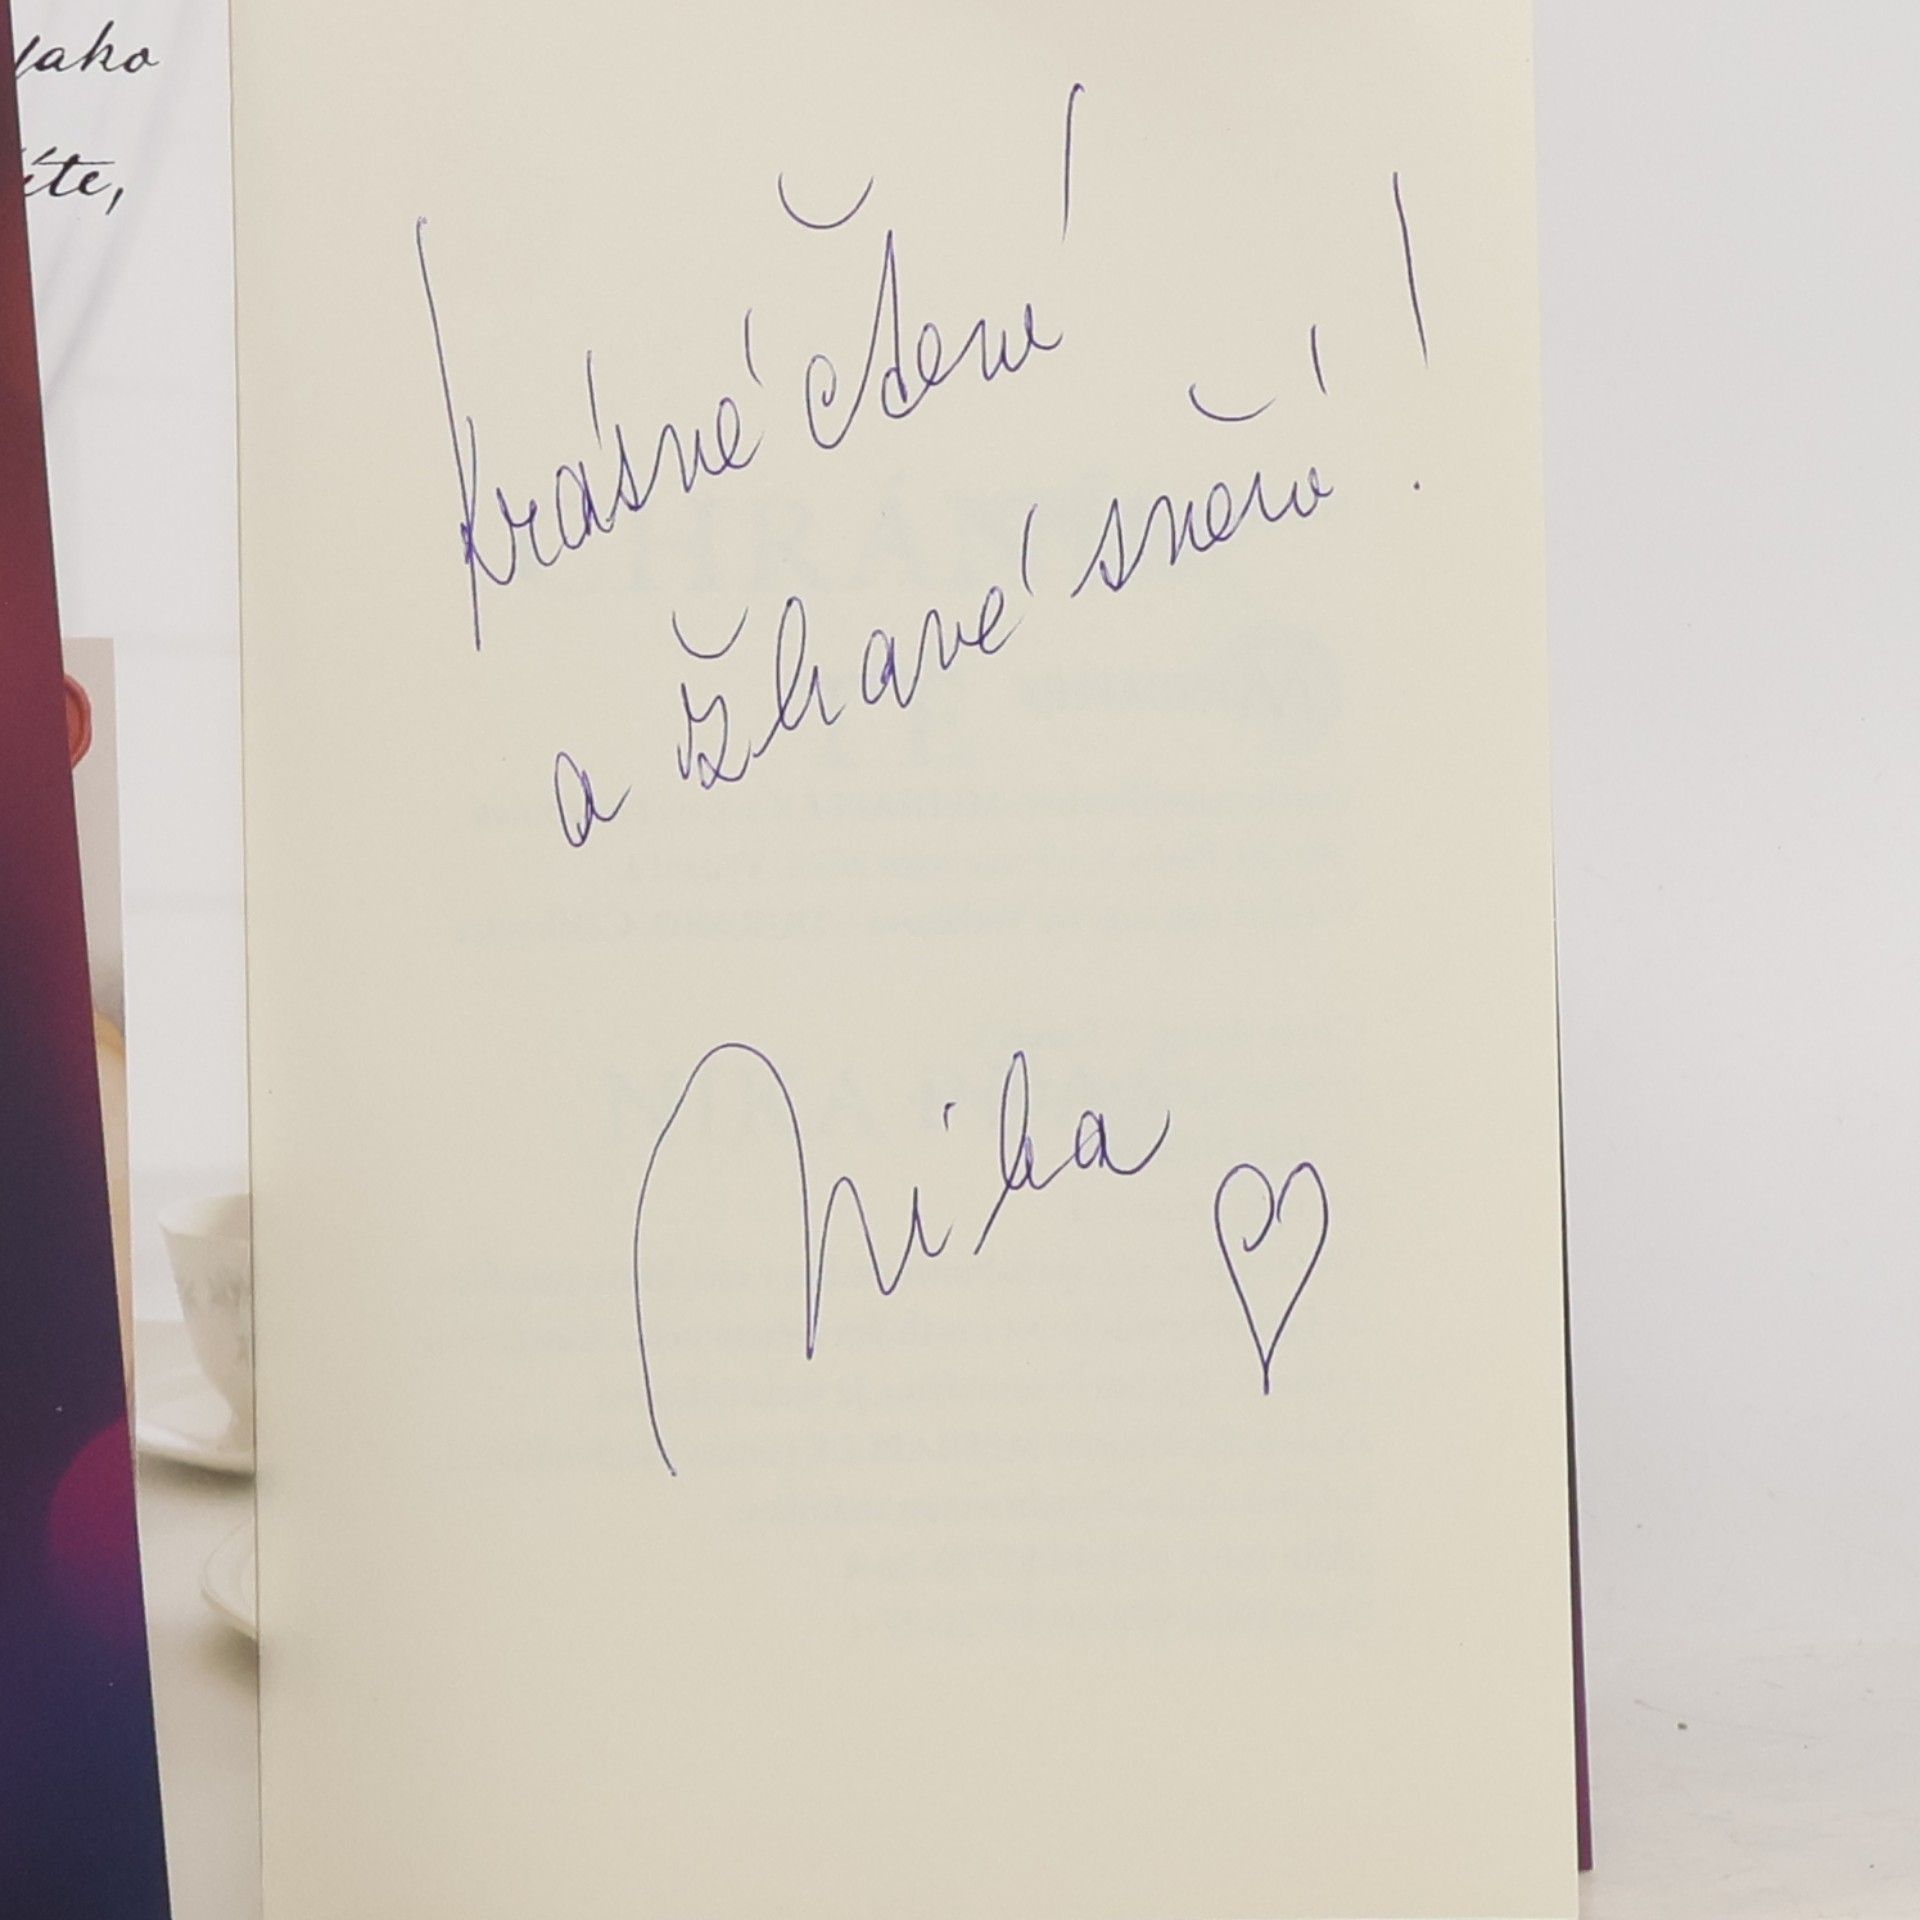 jako
íte,
krásné čtení
a žhavé snění!
Nika